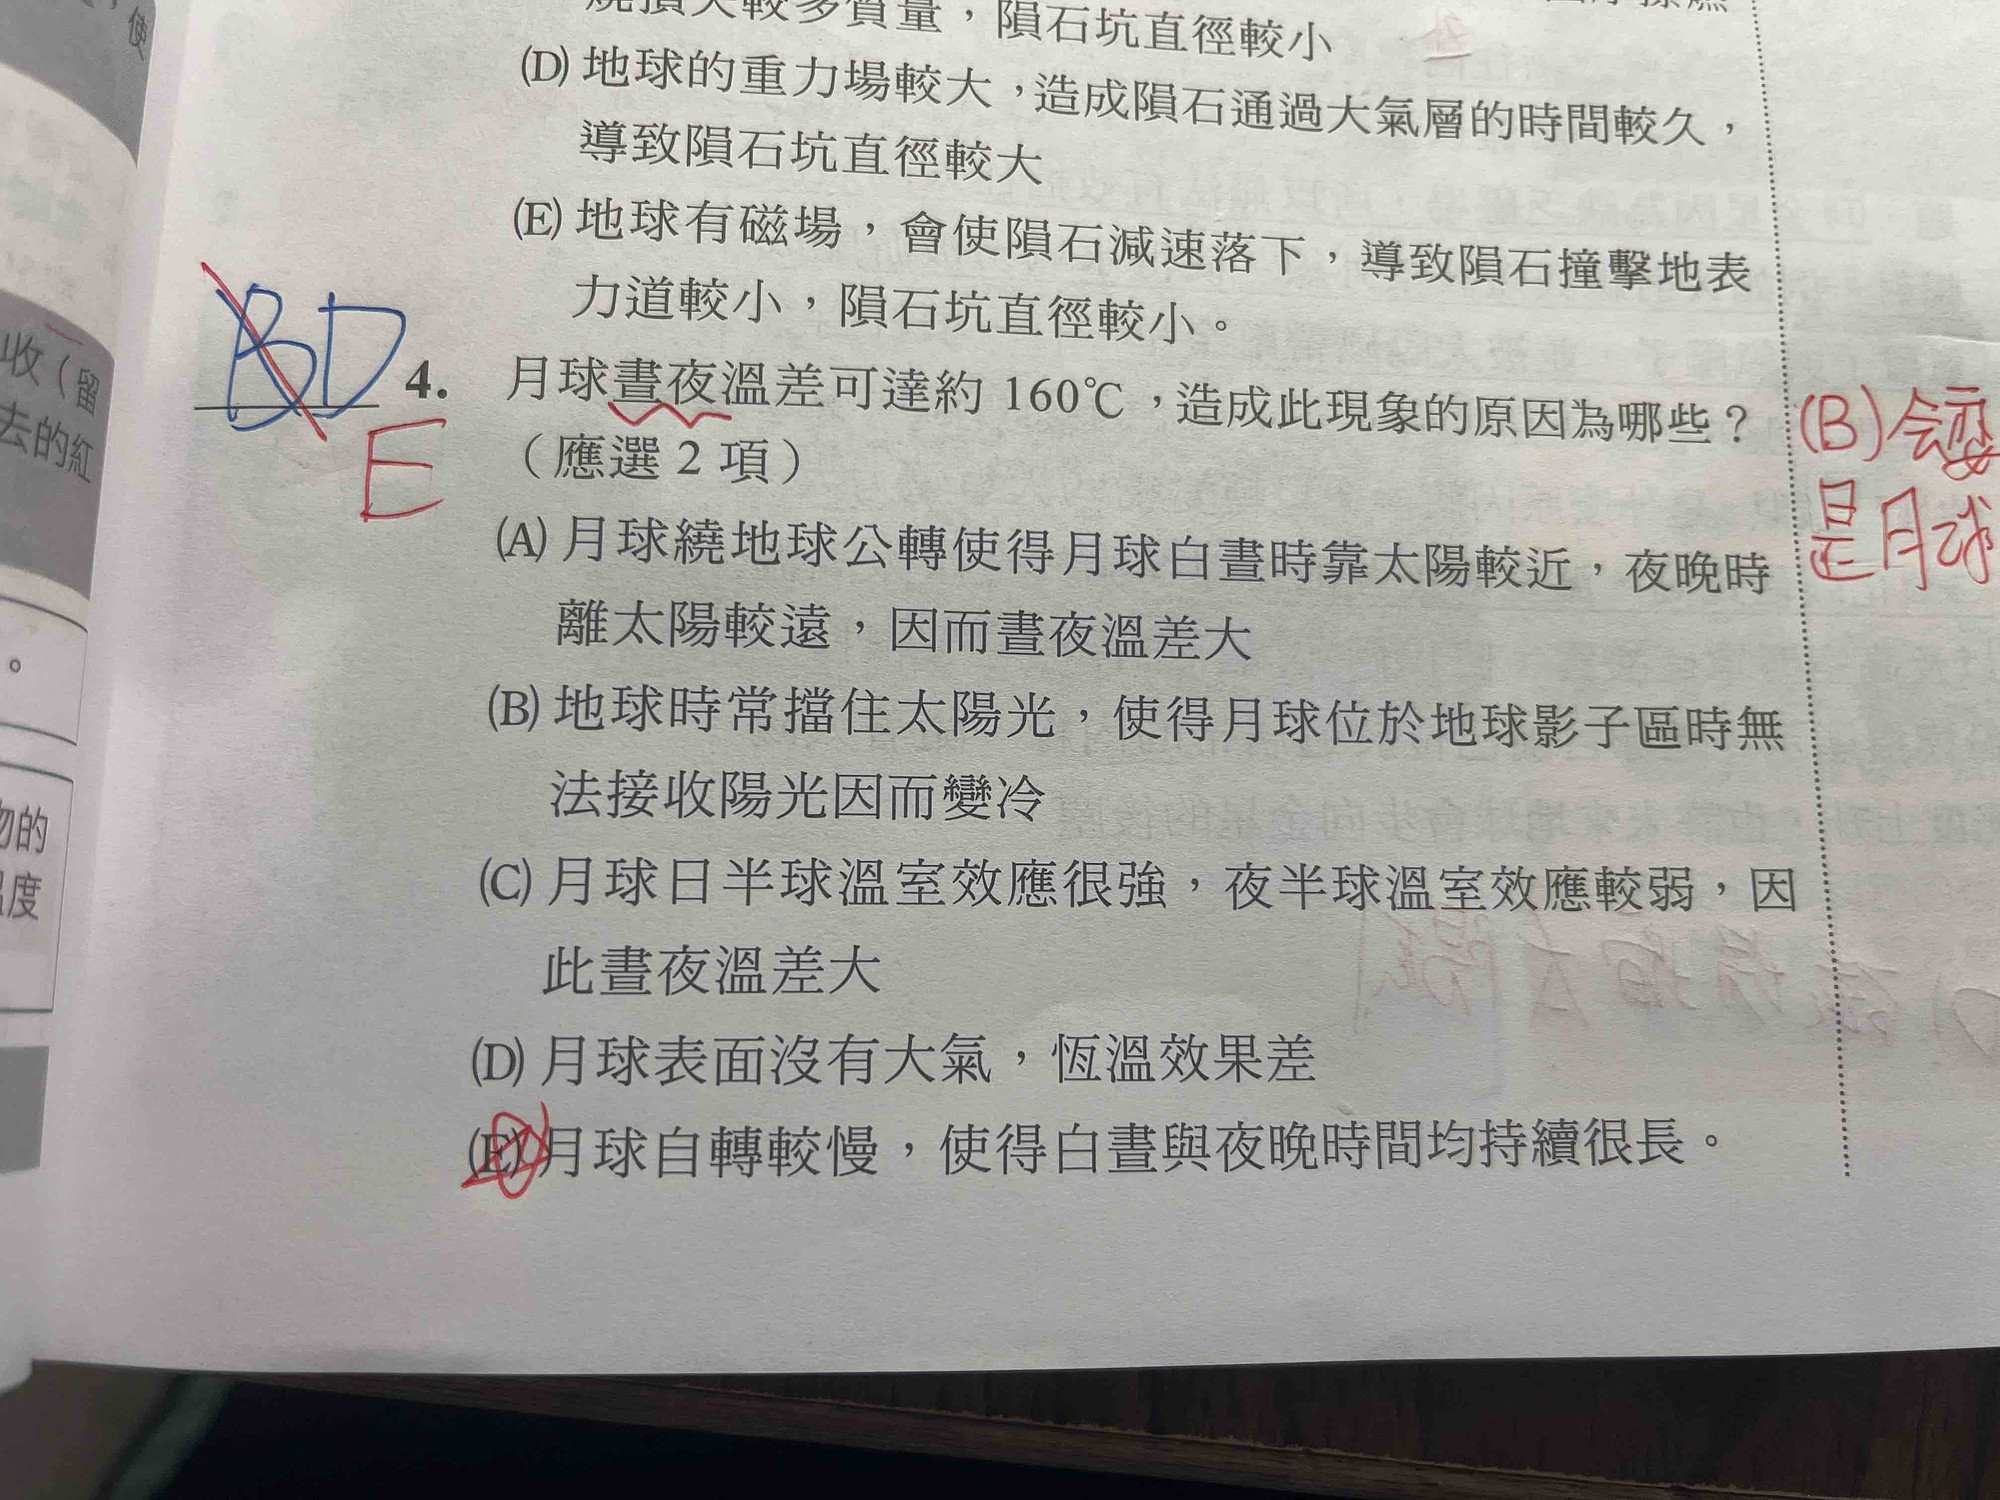 使
燒損大較多質量，隕石坑直徑較小
(D) 地球的重力場較大，造成隕石通過大氣層的時間較久，
導致隕石坑直徑較大
(E) 地球有磁場，會使隕石減速落下，導致隕石撞擊地表
力道較小，隕石坑直徑較小。
收（留
去的紅
。
物的
溫度
BD
E
4. 月球晝夜溫差可達約 160℃，造成此現象的原因為哪些？
（應選 2 項）
(A) 月球繞地球公轉使得月球白晝時靠太陽較近，夜晚時
離太陽較遠，因而晝夜溫差大
(B) 地球時常擋住太陽光，使得月球位於地球影子區時無
法接收陽光因而變冷
(C) 月球日半球溫室效應很強，夜半球溫室效應較弱，因
此晝夜溫差大
(D) 月球表面沒有大氣，恆溫效果差
(E) 月球自轉較慢，使得白晝與夜晚時間均持續很長。
(B)会变
是月球